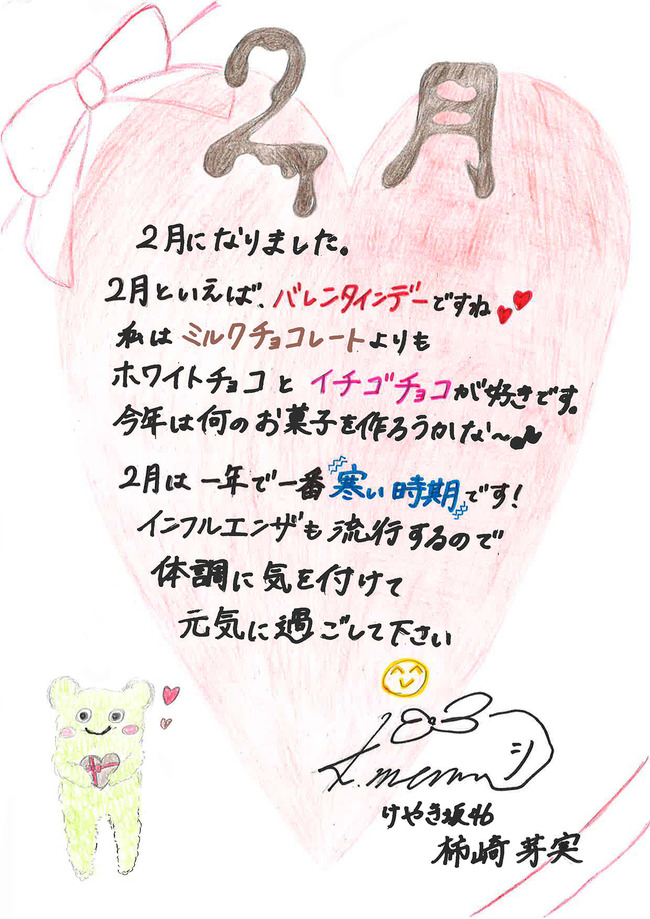 2月
2月になりました。
2月といえば、バレンタインデーですね
私はミルクチョコレートよりも
ホワイトチョコとイチゴチョコが好きです。
今年は何のお菓子を作ろうかな〜♪
2月は一年で一番寒い時期です!
インフルエンザも流行するので
体調に気を付けて
元気に過ごして下さい
けやき坂46
柿崎芽実